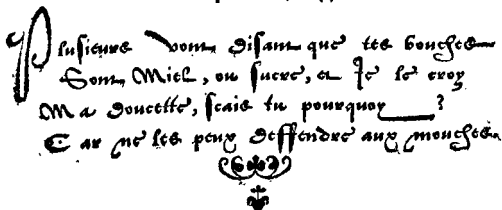 Plusieurs vont disant que tes bouches
Sont Miel, ou sucre, et Je le croy
Ma doucette, scais tu pourquoy ?
Car ne les peux deffendre aux mouches.